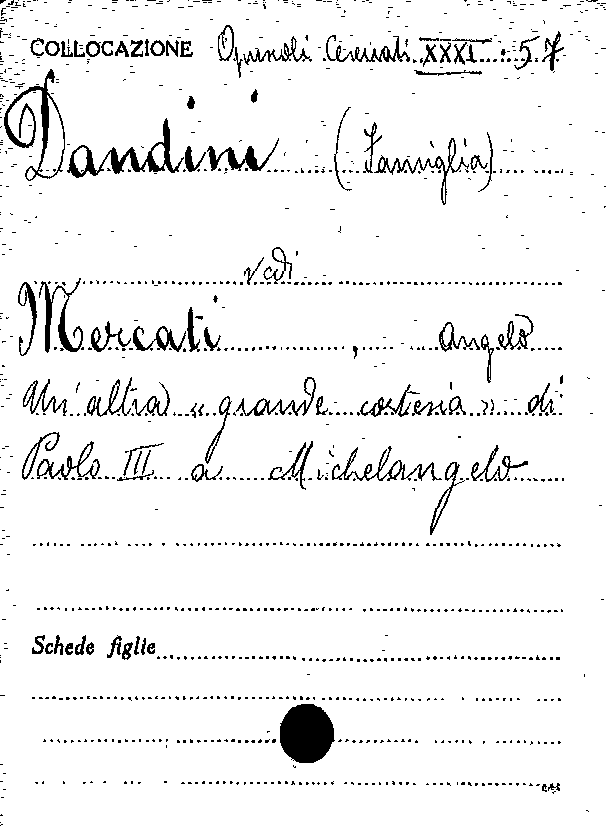 COLLOCAZIONE Opuscoli Cervati XXXI : 57
Dandini (Famiglia)
vedi
Mercati, Angelo
Un'altra «grande cortesia» di
Paolo III a Michelangelo
Schede figlie